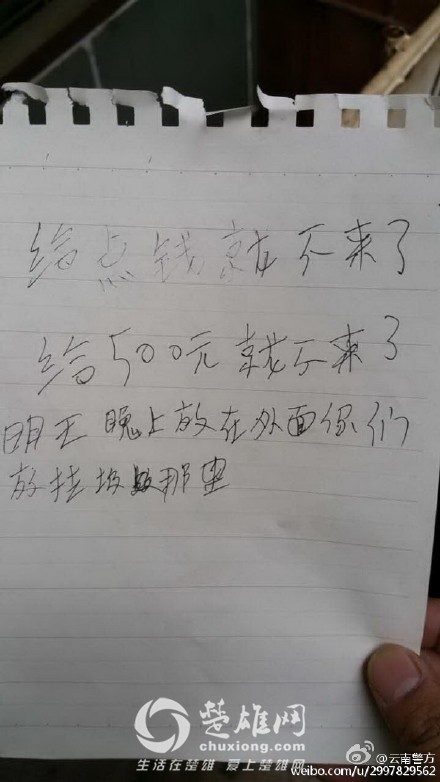 给点钱就不来了
给500元就不来了
明天晚上放在外面你们
放垃圾那里
楚雄网
chuxiong.com
生活在楚雄 爱上楚雄网
@云南警方
weibo.com/u/2997829562